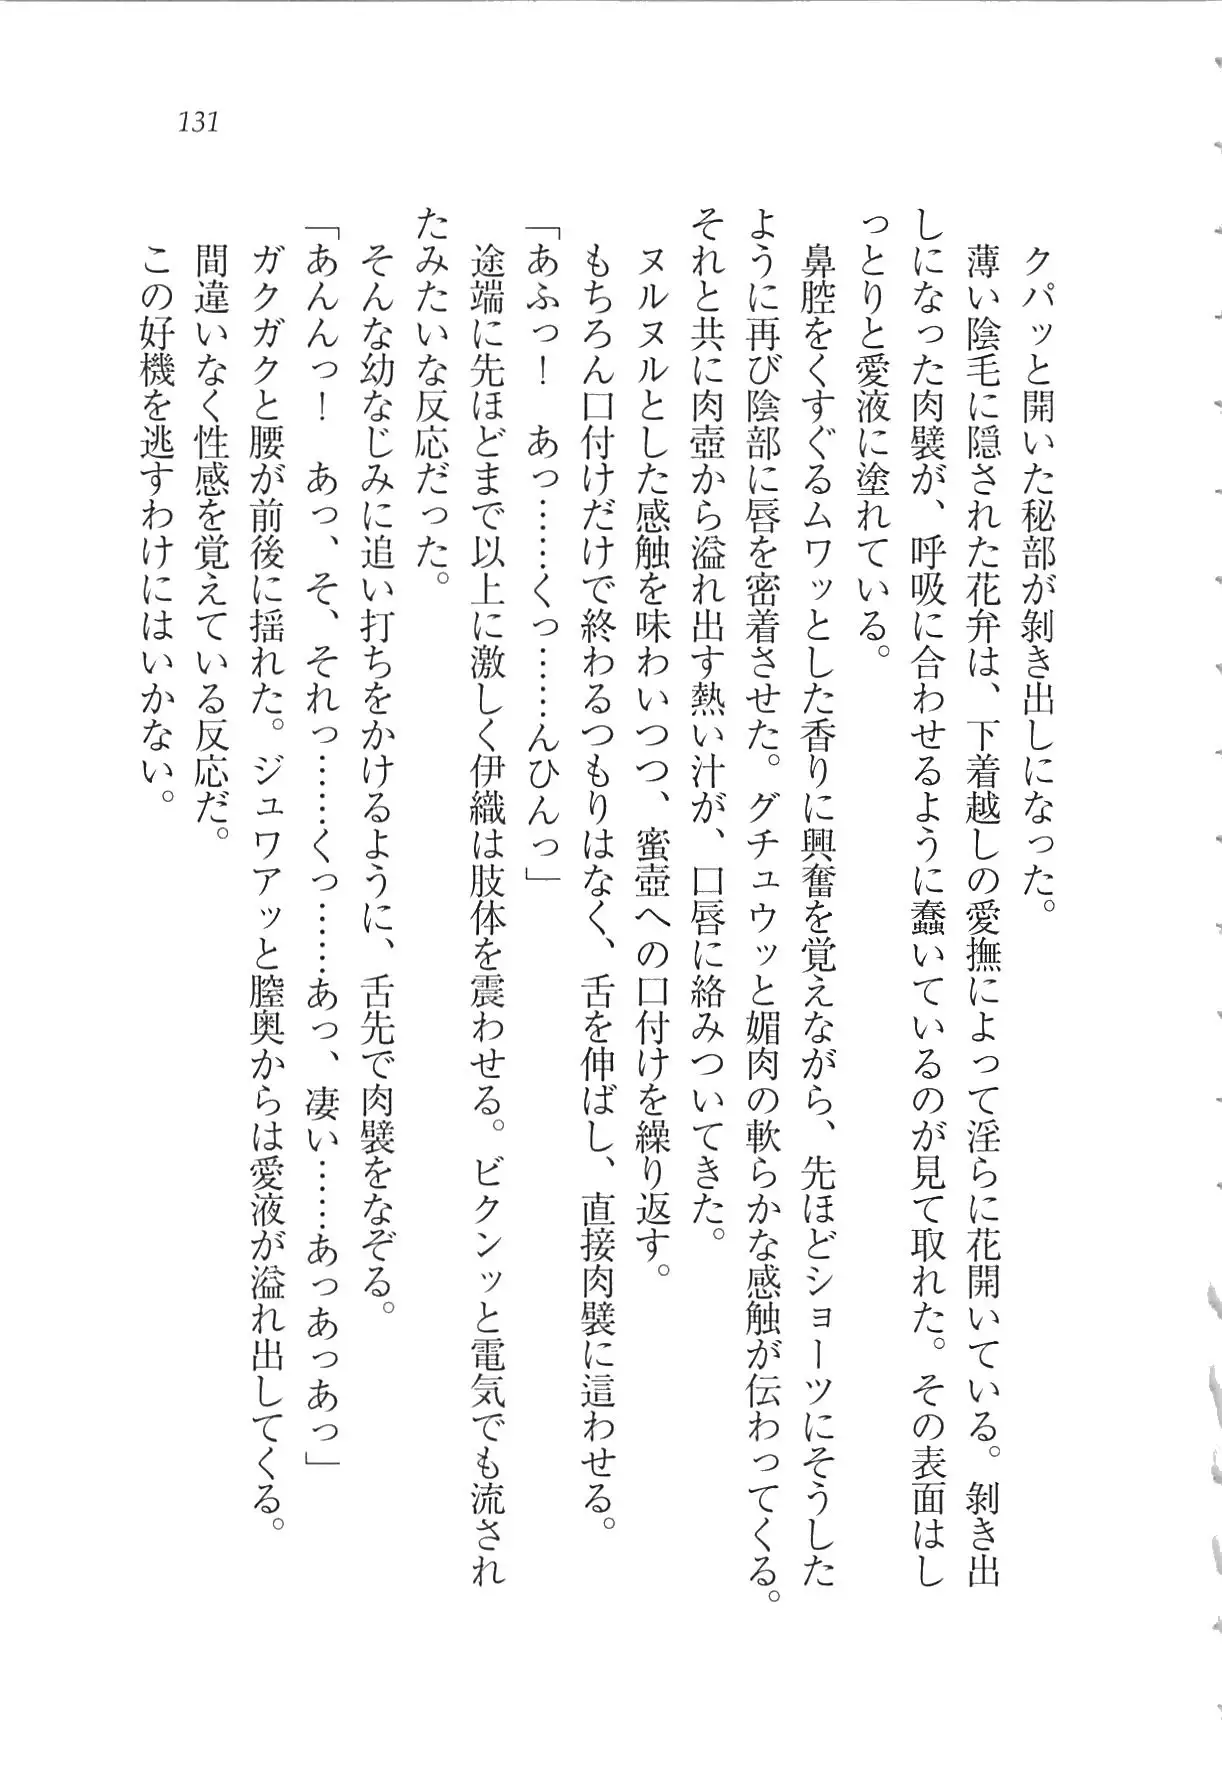 131
クパッと開いた秘部が剝き出しになった。
薄い陰毛に隠された花弁は、下着越しの愛撫によって淫らに花開いている。剝き出
しになった肉襞が、呼吸に合わせるように蠢いているのが見て取れた。その表面はし
っとりと愛液に塗れている。
鼻腔をくすぐるムワッとした香りに興奮を覚えながら、先ほどショーツにそうした
ように再び陰部に唇を密着させた。グチュウッと媚肉の軟らかな感触が伝わってくる。
それと共に肉壺から溢れ出す熱い汁が、口唇に絡みついてきた。
ヌルヌルとした感触を味わいつつ、蜜壺への口付けを繰り返す。
もちろん口付けだけで終わるつもりはなく、舌を伸ばし、直接肉襞に這わせる。
「あふっ！　あっ……くっ……んひんっ」
途端に先ほどまで以上に激しく伊織は肢体を震わせる。ビクンッと電気でも流され
たみたいな反応だった。
そんな幼なじみに追い打ちをかけるように、舌先で肉襞をなぞる。
「あんんっ！　あっ、そ、それっ……くっ……あっ、凄い……あっあっあっ」
ガクガクと腰が前後に揺れた。ジュワアッと膣奥からは愛液が溢れ出してくる。
間違いなく性感を覚えている反応だ。
この好機を逃すわけにはいかない。